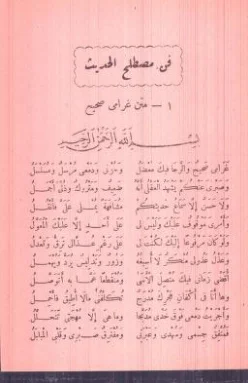 فن مصطلح الحديث
١ — متن غرامى صحيح
بسم الله الرحمن الرحيم
غرامى صحيح والرجا فيك معضل وحزنى ودمعى مرسل ومسلسل
وصبرى عنكم يشهد العقل أنه ضعيف ومتروك وذلى أجمل
ولا حسن إلا سماع حديثكم مشافهة يملى على فأنقل
وأمرى موقوف عليك وليس لى على أحد إلا عليك المعول
ولو كان مرفوعا إليك لكنت لى على رغم عذالى ترق وتعدل
وعذل عذولى منكر لا أسيغه وزور وتدليس يرد ويهمل
أقضى زمانى فيك متصل الأسى ومنقطعا عما به أتوصل
وها أنا فى أكفان هجرك مدرج تكلفنى ما لا أطيق فأحمل
وأجريت دمعى فوق خدى مدبجا وما هى إلا مهجتى تتحلل
فمتفق جسمى وسهدى وعبرتى ومفترق صبرى وقلبى المبلبل